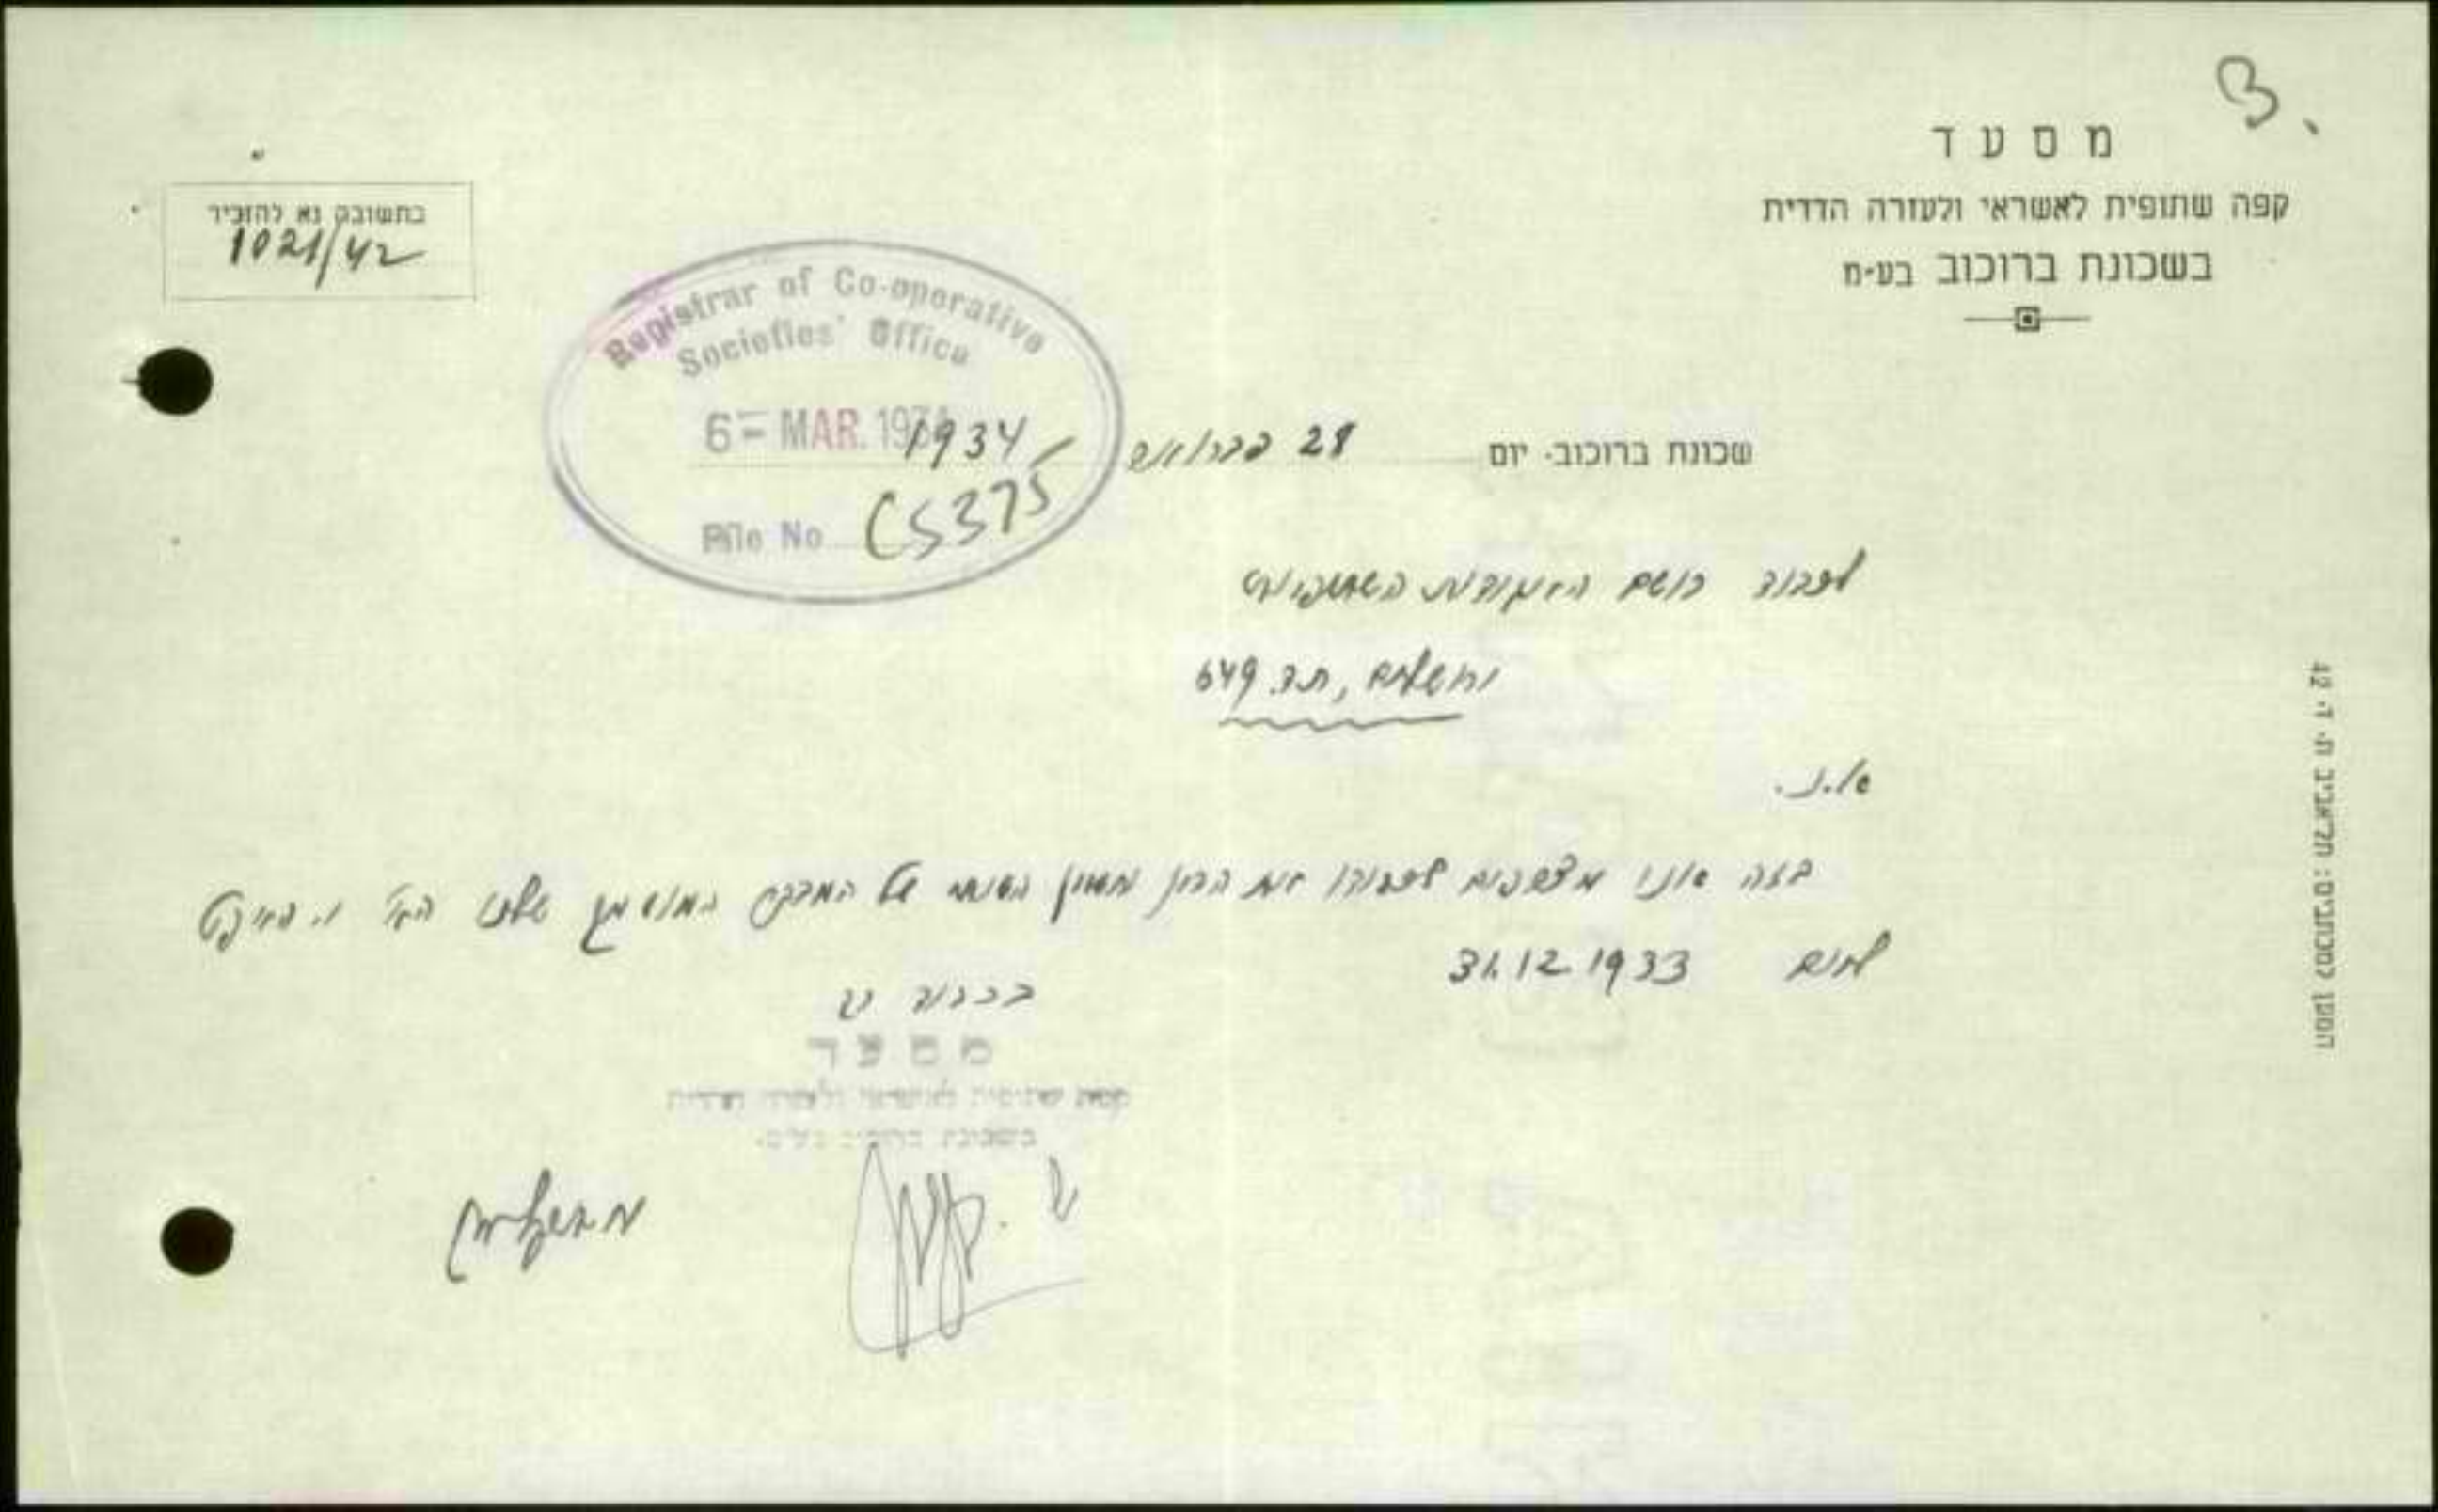 3.
מסעד
קפה שתופית לאשראי ולעזרה הדדית
בשכונת ברוכוב בע״מ
בתשובה נא להזכיר
1021/42
Registrar of Co-operative
Societies' Office
6 - MAR. 1934
File No CS375
שכונת ברוכוב. יום 28 פברואר 1934
לכבוד רושם האגודות השתופיות
ירושלים, ת.ד. 649
א.נ.
בזה אננו מצרפים לכבודו את הדין וחשבון השנתי של המבקר המוסמך שלנו האד׳
ליום 31.12.1933
בכבוד רב
מסעד
קפה שתופית לאשראי ולעזרה הדדית
בשכונת ברוכוב בע״מ.
המען למכתבים: תל־אביב ת. ד. 42